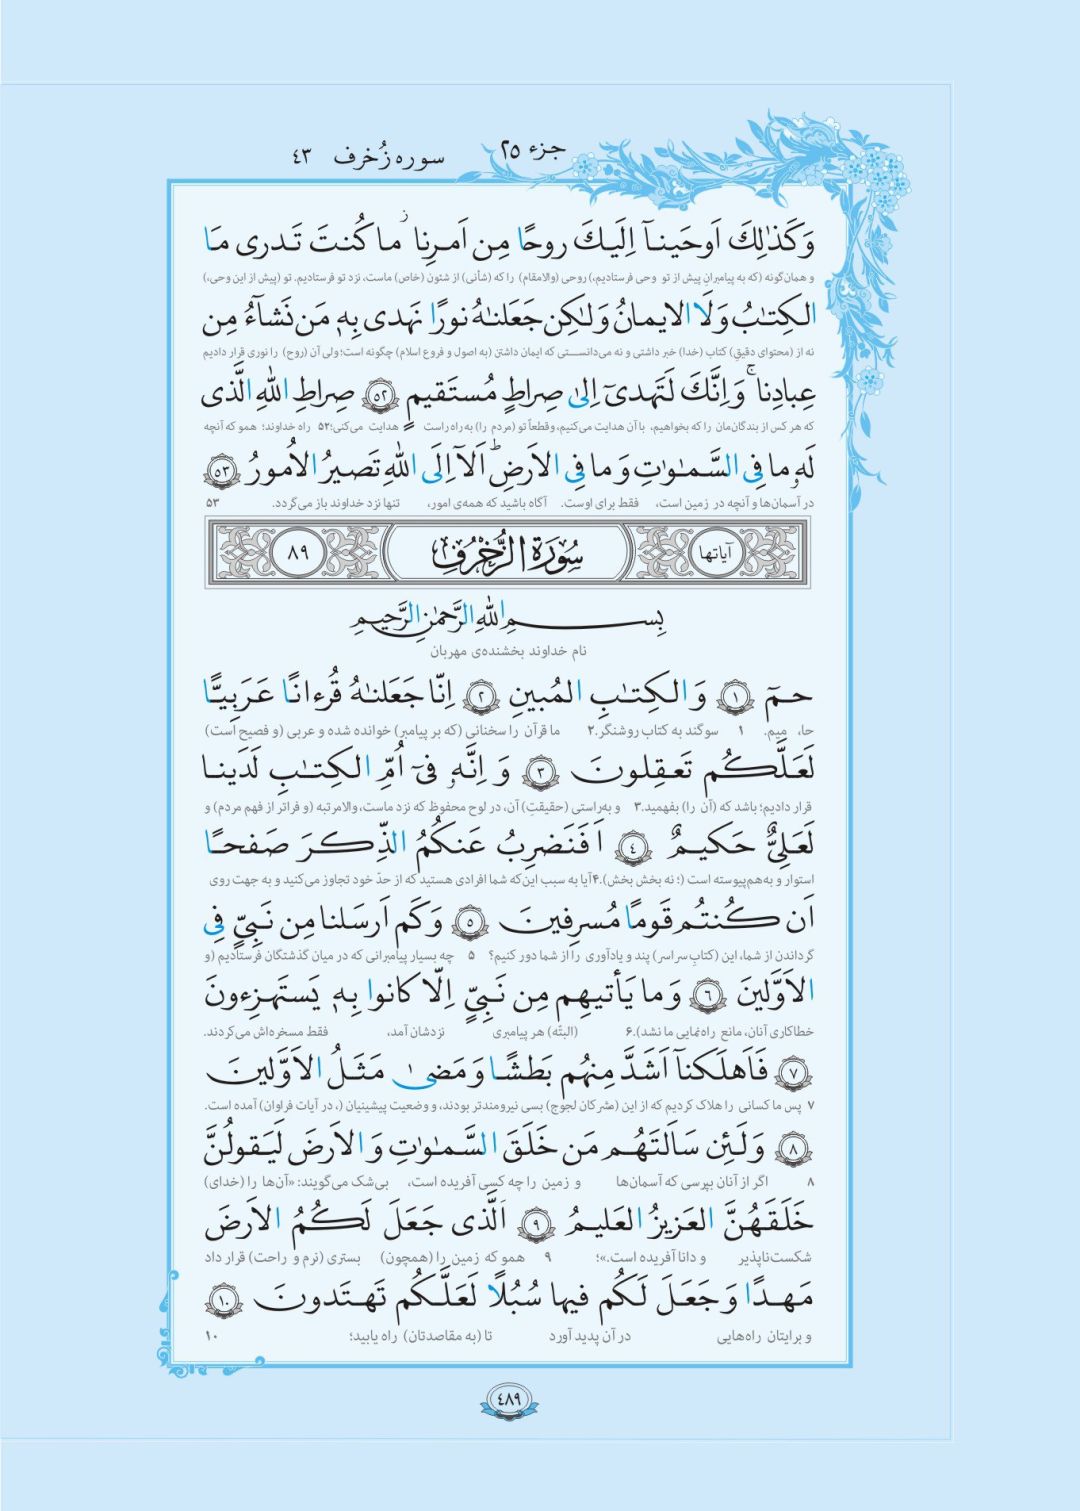 جزء ٢٥
سوره زُخرف ٤٣
وَ كَذٰلِكَ اَوحَينآ اِلَيكَ روحًا مِن اَمرِنا ۚ ما كُنتَ تَدرى مَا
و همان‌گونه (که به پیامبرانِ پیش از تو وحی فرستادیم،) روحی (والامقام) را که (شأنی) از شئون (خاص) ماست، نزد تو فرستادیم. تو (پیش از این وحی،)
الكِتٰبُ وَلَا الايمانُ وَلٰكِن جَعَلنٰهُ نورًا نَهدى بِهٖ مَن نَشآءُ مِن
نه از (محتوای دقیق) کتاب (خدا) خبر داشتی و نه می‌دانستی که ایمان داشتن (به اصول و فروع اسلام) چگونه است؛ ولی آن (روح) را نوری قرار دادیم
عِبادِنا ۚ وَ اِنَّكَ لَتَهدىٓ اِلىٰ صِراطٍ مُستَقيمٍ ٥٢ صِراطِ اللّٰهِ الَّذى
که هر کس از بندگان‌مان را که بخواهیم، با آن هدایت می‌کنیم، و قطعاً تو (مردم را) به راه راست هدایت می‌کنی؛ ۵۲ راه خداوند؛ همو که آنچه
لَهٗ ما فِى السَّمٰوٰتِ وَ ما فِى الاَرضِ ۗ اَلآ اِلَى اللّٰهِ تَصيرُ الاُمورُ ٥٣
در آسمان‌ها و آنچه در زمین است، فقط برای اوست. آگاه باشید که همه‌ی امور، تنها نزد خداوند باز می‌گردد. ۵۳
آیاتها سُورَةُ الزُّخرُفِ ٨٩
بِسمِ اللّٰهِ الرَّحمٰنِ الرَّحيمِ
نام خداوند بخشنده‌ی مهربان
حمٓ ١ وَ الكِتٰبِ المُبينِ ٢ اِنّا جَعَلنٰهُ قُرءانًا عَرَبِيًّا
حا، میم. ۱ سوگند به کتاب روشنگر. ۲ ما قرآن را سخنانی (که بر پیامبر) خوانده شده و عربی (و فصیح است)
لَعَلَّكُم تَعقِلونَ ٣ وَ اِنَّهٗ فىٓ اُمِّ الكِتٰبِ لَدَينا
قرار دادیم؛ باشد که (آن را) بفهمید. ۳ و به‌راستی (حقیقتِ) آن، در لوح محفوظ که نزد ماست، والامرتبه (و فراتر از فهم مردم) و
لَعَلِىٌّ حَكيمٌ ٤ اَفَنَضرِبُ عَنكُمُ الذِّكرَ صَفحًا
استوار و به‌هم‌پیوسته است (؛ نه بخش بخش). ۴ آیا به سبب این‌که شما افرادی هستید که از حدّ خود تجاوز می‌کنید و به جهت روی
اَن كُنتُم قَومًا مُسرِفينَ ٥ وَ كَم اَرسَلنا مِن نَبِىٍّ فِى
گرداندن از شما، این (کتابِ سراسر) پند و یادآوری را از شما دور کنیم؟ ۵ چه بسیار پیامبرانی که در میان گذشتگان فرستادیم (و
الاَوَّلينَ ٦ وَ ما يَأتيهِم مِن نَبِىٍّ اِلّا كانوا بِهٖ يَستَهزِءونَ
خطاکاری آنان، مانع راه‌نمایی ما نشد). ۶ (البتّه) هر پیامبری نزدشان آمد، فقط مسخره‌اش می‌کردند.
٧ فَاَهلَكنآ اَشَدَّ مِنهُم بَطشًا وَ مَضىٰ مَثَلُ الاَوَّلينَ
۷ پس ما کسانی را هلاک کردیم که از این (مشرکان لجوج) بسی نیرومندتر بودند، و وضعیت پیشینیان (، در آیات فراوان) آمده است.
٨ وَ لَئِن سَاَلتَهُم مَن خَلَقَ السَّمٰوٰتِ وَ الاَرضَ لَيَقولُنَّ
۸ اگر از آنان بپرسی که آسمان‌ها و زمین را چه کسی آفریده است، بی‌شک می‌گویند: «آن‌ها را (خدای)
خَلَقَهُنَّ العَزيزُ العَليمُ ٩ اَلَّذى جَعَلَ لَكُمُ الاَرضَ
شکست‌ناپذیر و دانا آفریده است.»؛ ۹ همو که زمین را (همچون) بستری (نرم و راحت) قرار داد
مَهدًا وَ جَعَلَ لَكُم فيها سُبُلًا لَعَلَّكُم تَهتَدونَ ١٠
و برایتان راه‌هایی در آن پدید آورد تا (به مقاصدتان) راه یابید؛ ۱۰
٤٨٩